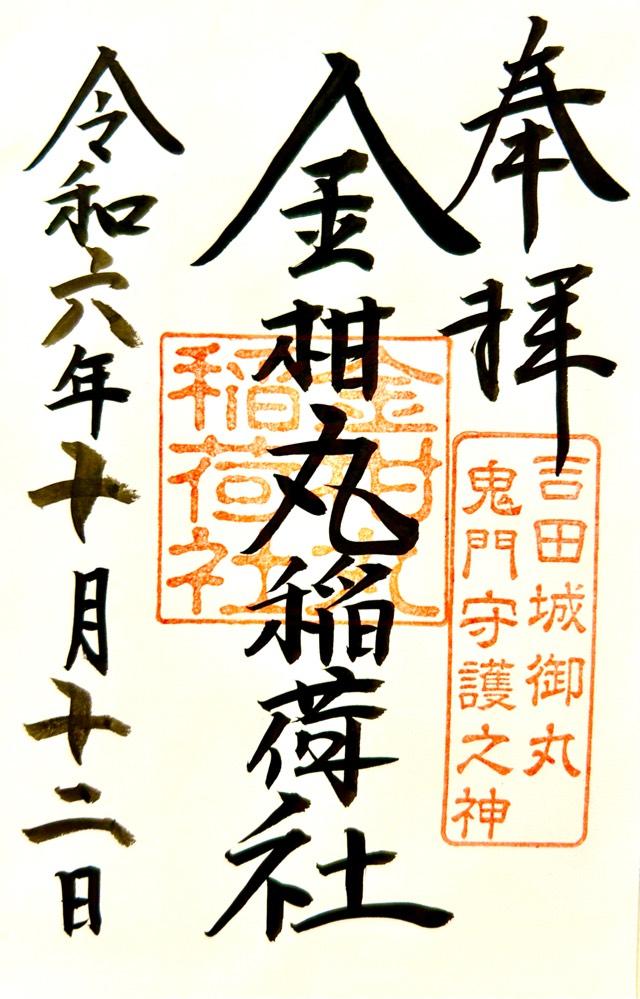 奉拝
吉田城御丸
鬼門守護之神
金柑丸稲荷社
金柑丸
稲荷社
令和六年十月十二日